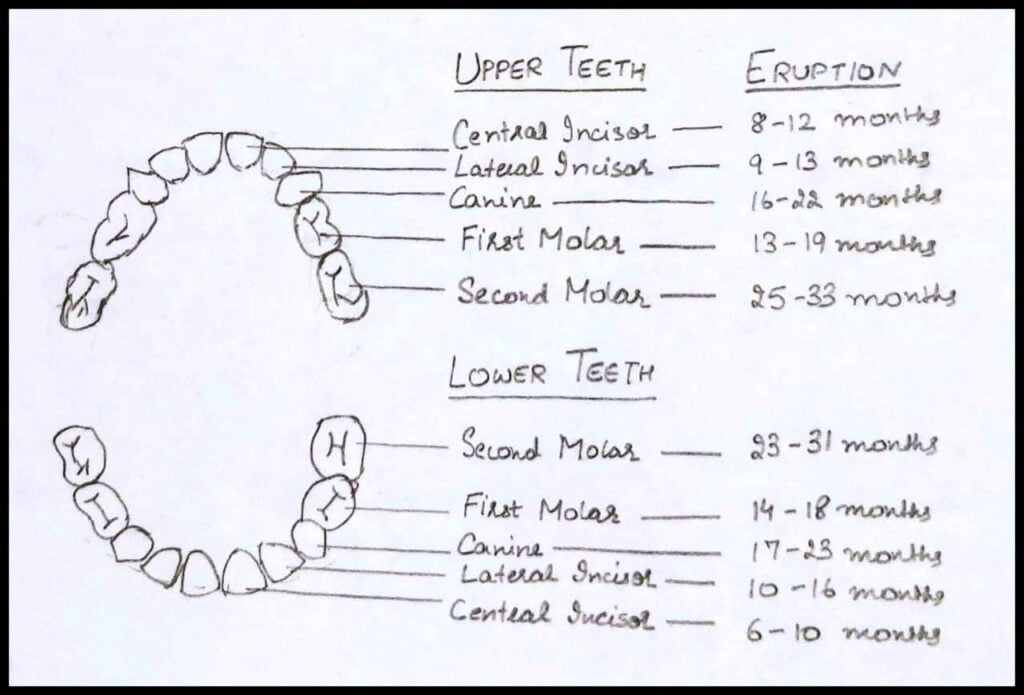 UPPER TEETH ERUPTION
Central Incisor — 8-12 months
Lateral Incisor — 9-13 months
Canine — 16-22 months
First Molar — 13-19 months
Second Molar — 25-33 months
LOWER TEETH
Second Molar — 23-31 months
First Molar — 14-18 months
Canine — 17-23 months
Lateral Incisor — 10-16 months
Central Incisor — 6-10 months